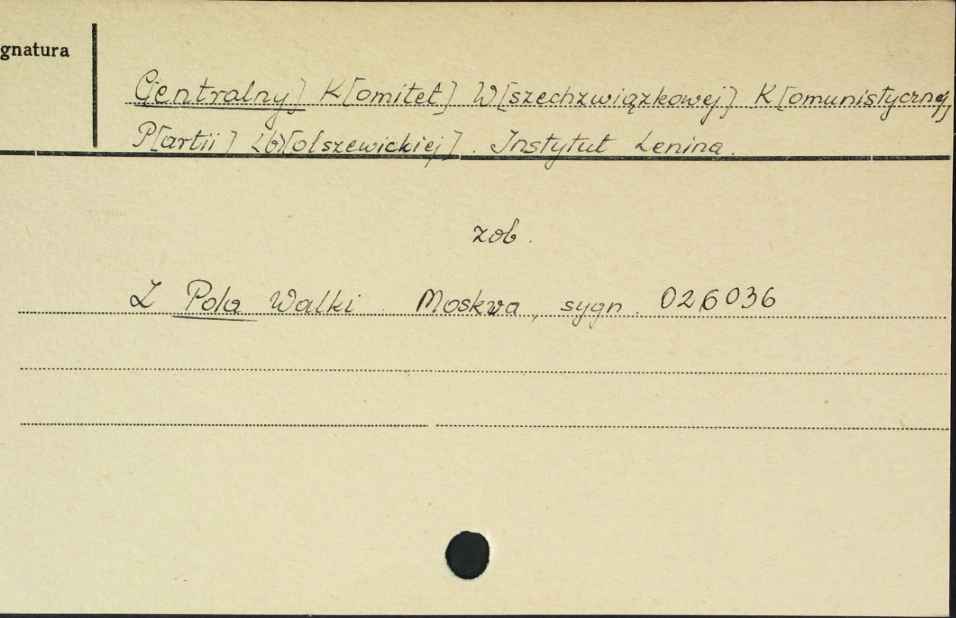 gnatura
C[entralny] K[omitet] W[szechzwiązkowej] K[omunistycznej]
P[artii] /b/[olszewickiej]. Instytut Lenina.
zob.
Z Pola Walki. Moskwa, sygn. 026036